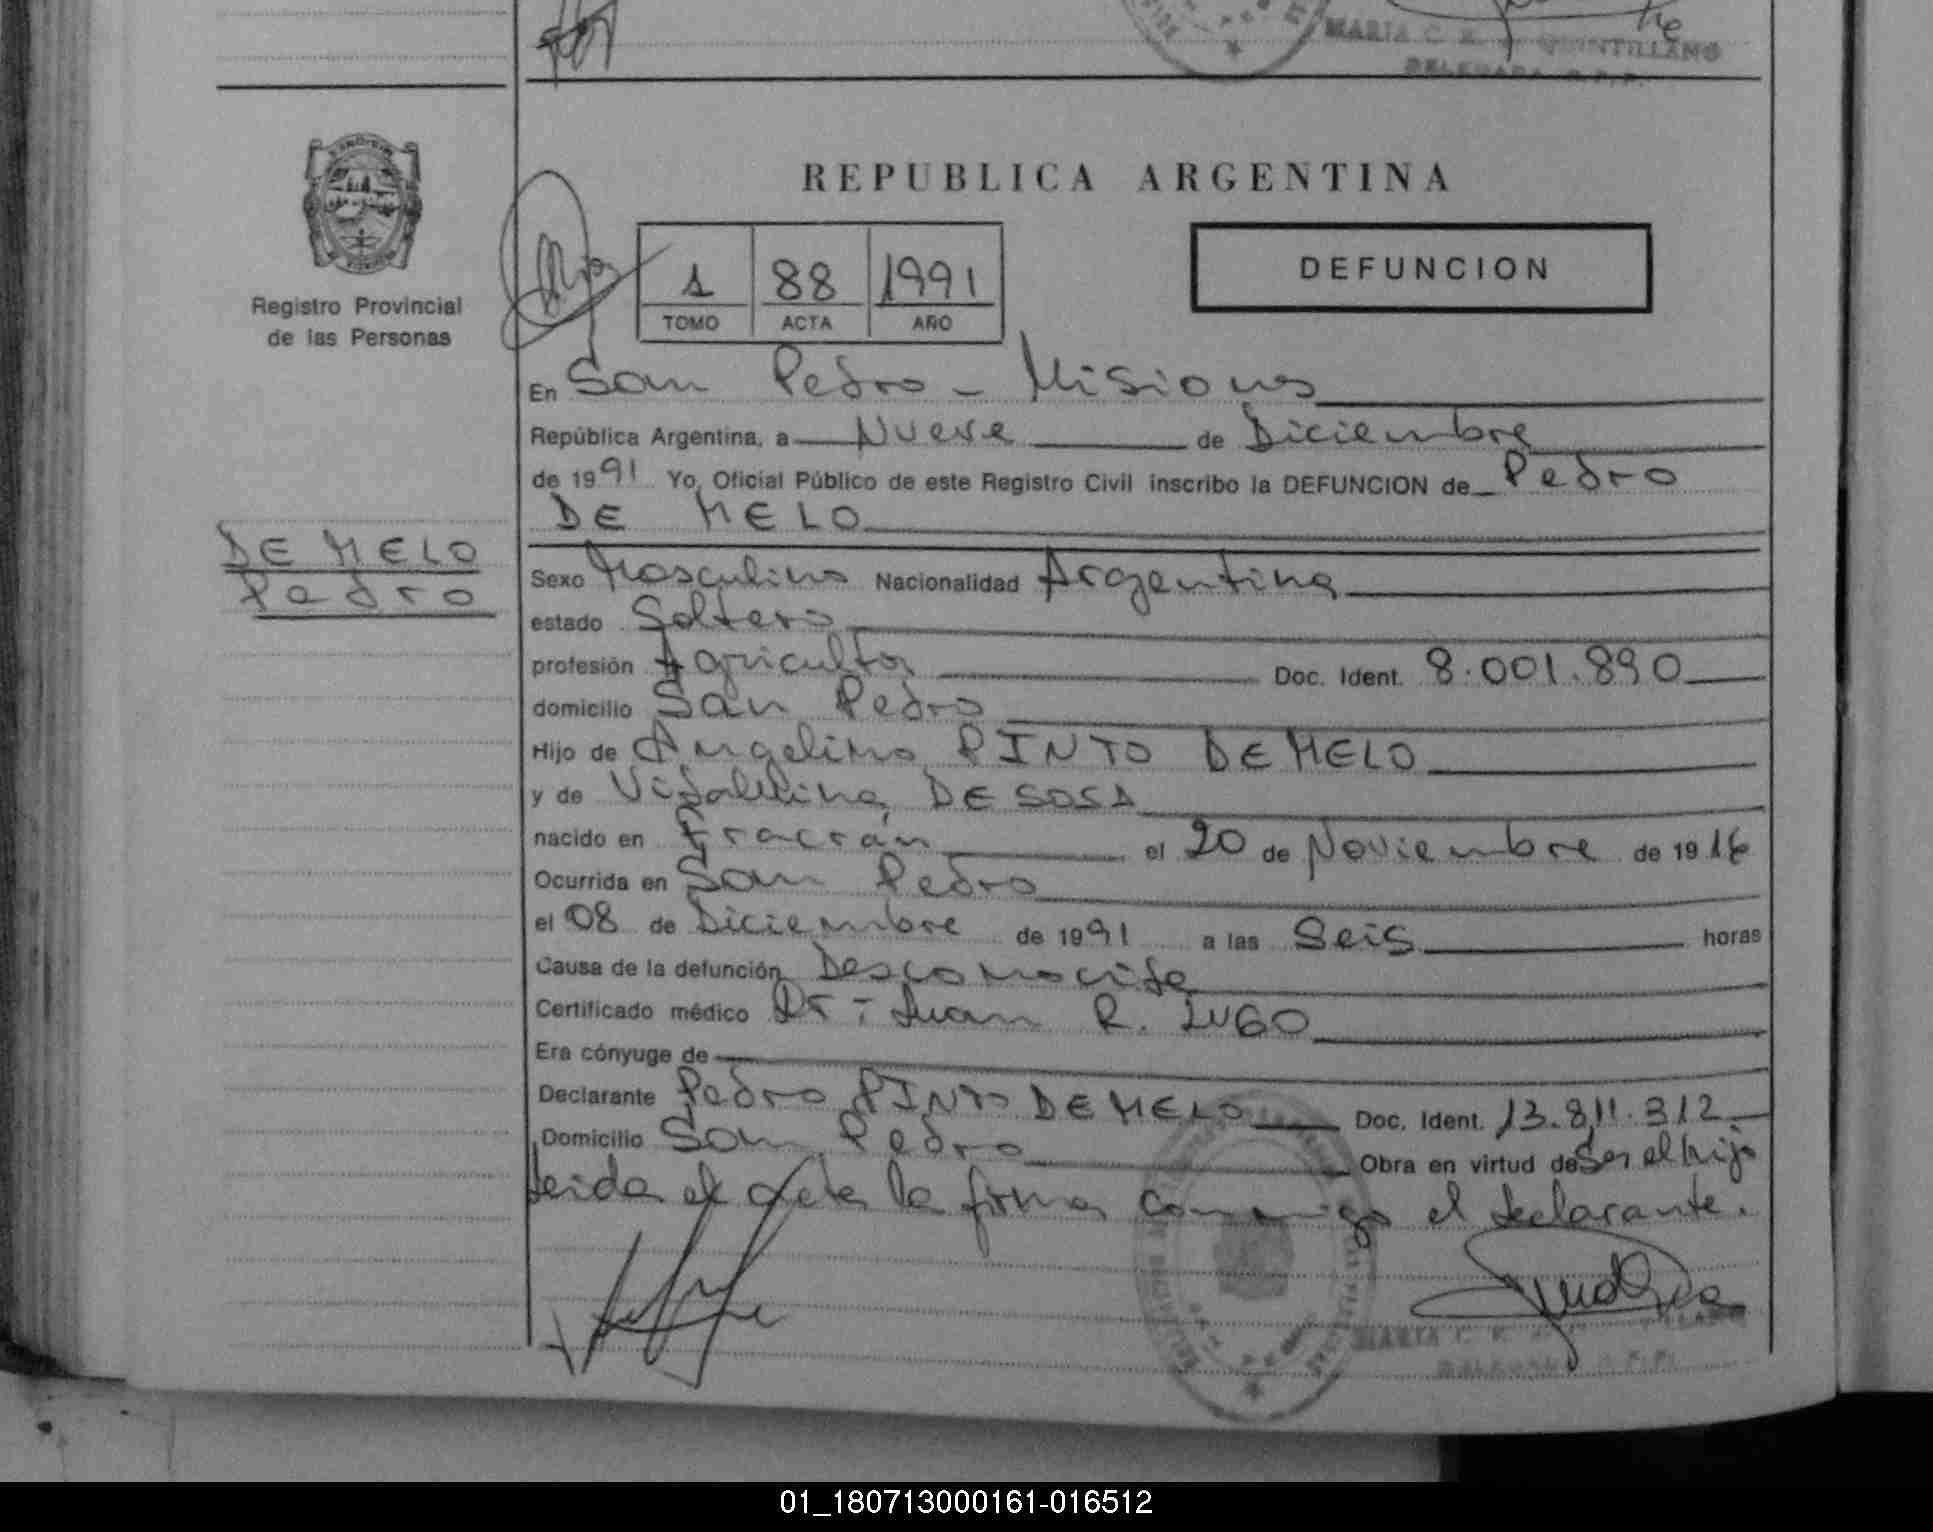 MARIA C. K. QUINTILLANO
DELEGADA R.P.P.
REPUBLICA ARGENTINA
DEFUNCION
1 88 1991
TOMO ACTA AÑO
Registro Provincial
de las Personas
En San Pedro - Misiones
República Argentina, a Nueve de Diciembre
de 1991 Yo, Oficial Público de este Registro Civil inscribo la DEFUNCION de Pedro
DE MELO
DE MELO
Pedro
Sexo Masculino Nacionalidad Argentina
estado Soltero
profesión Agricultor Doc. Ident. 8.001.890
domicilio San Pedro
Hijo de Angelino PINTO DE MELO
y de Vidalvina DE SOSA
nacido en Fracrán el 20 de Noviembre de 1916
Ocurrida en San Pedro
el 08 de Diciembre de 1991 a las Seis horas
Causa de la defunción Desconocida
Certificado médico Dr: Juan R. LUGO
Era cónyuge de
Declarante Pedro PINTO DE MELO Doc. Ident. 13.811.312
Domicilio San Pedro Obra en virtud de Ser el hijo
Leida el acta la firma conmigo el declarante.
MARIA C. K.
DELEGADA R.P.P.
01_180713000161-016512